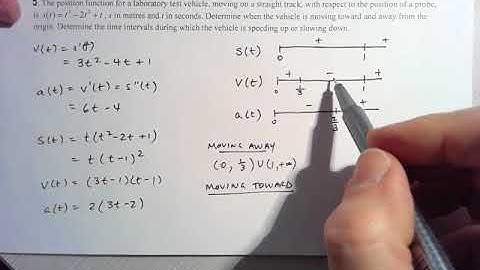 3. The position function for a laboratory test vehicle, moving on a straight track, with respect to the position of a probe,
is s(t) = t³ − 2t² + t, s in metres and t in seconds. Determine when the vehicle is moving toward and away from the
origin. Determine the time intervals during which the vehicle is speeding up or slowing down.
v(t) = s'(t)
= 3t² − 4t + 1
a(t) = v'(t) = s"(t)
= 6t − 4
s(t) = t(t² − 2t + 1)
= t(t − 1)²
v(t) = (3t − 1)(t − 1)
a(t) = 2(3t − 2)
s(t) + +
0 1
v(t) + − +
0 1/3 1
a(t) − +
0 2/3
MOVING AWAY
(0, 1/3) ∪ (1, +∞)
MOVING TOWARD